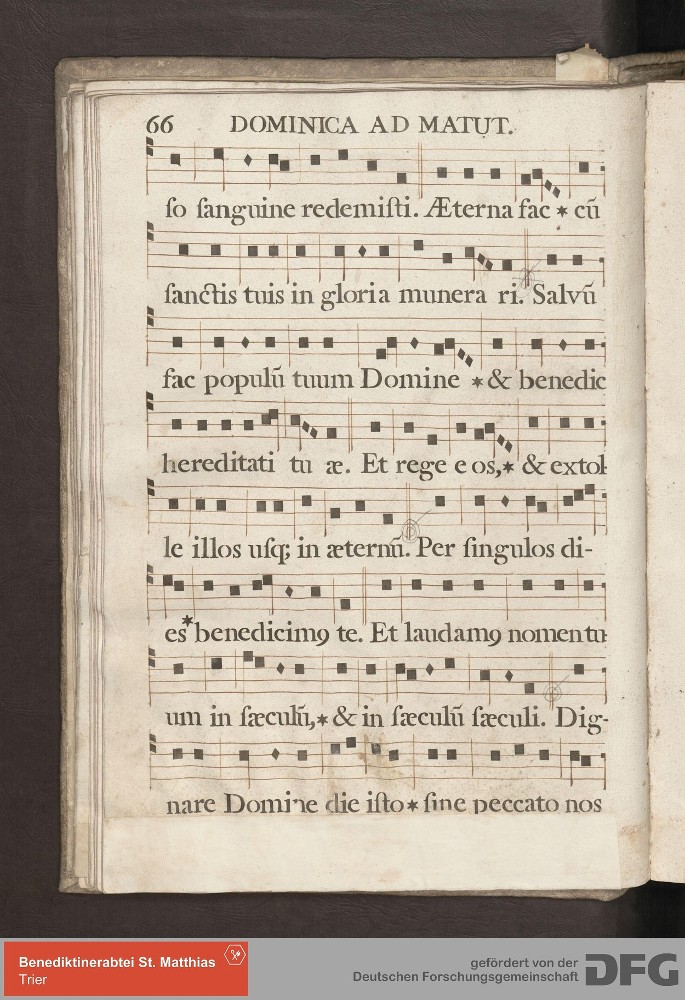 66 DOMINICA AD MATUT.
ſo ſanguine redemiſti. Æterna fac * cū
ſanctis tuis in gloria munera ri. Salvū
fac populū tuum Domine * & benedic
hereditati tu æ. Et rege e os, * & extol
le illos uſq; in æternū. Per ſingulos di-
es * benedicimꝯ te. Et laudamꝯ nomen tu
um in ſæculū, * & in ſæculū ſæculi. Dig-
nare Domine die iſto * ſine peccato nos
Benediktinerabtei St. Matthias
Trier
gefördert von der
Deutschen Forschungsgemeinschaft DFG